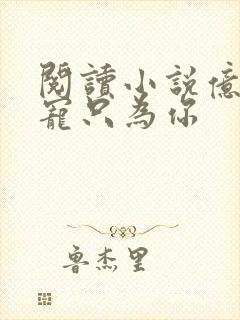 閱讀小説億
寵只為你
魯杰里